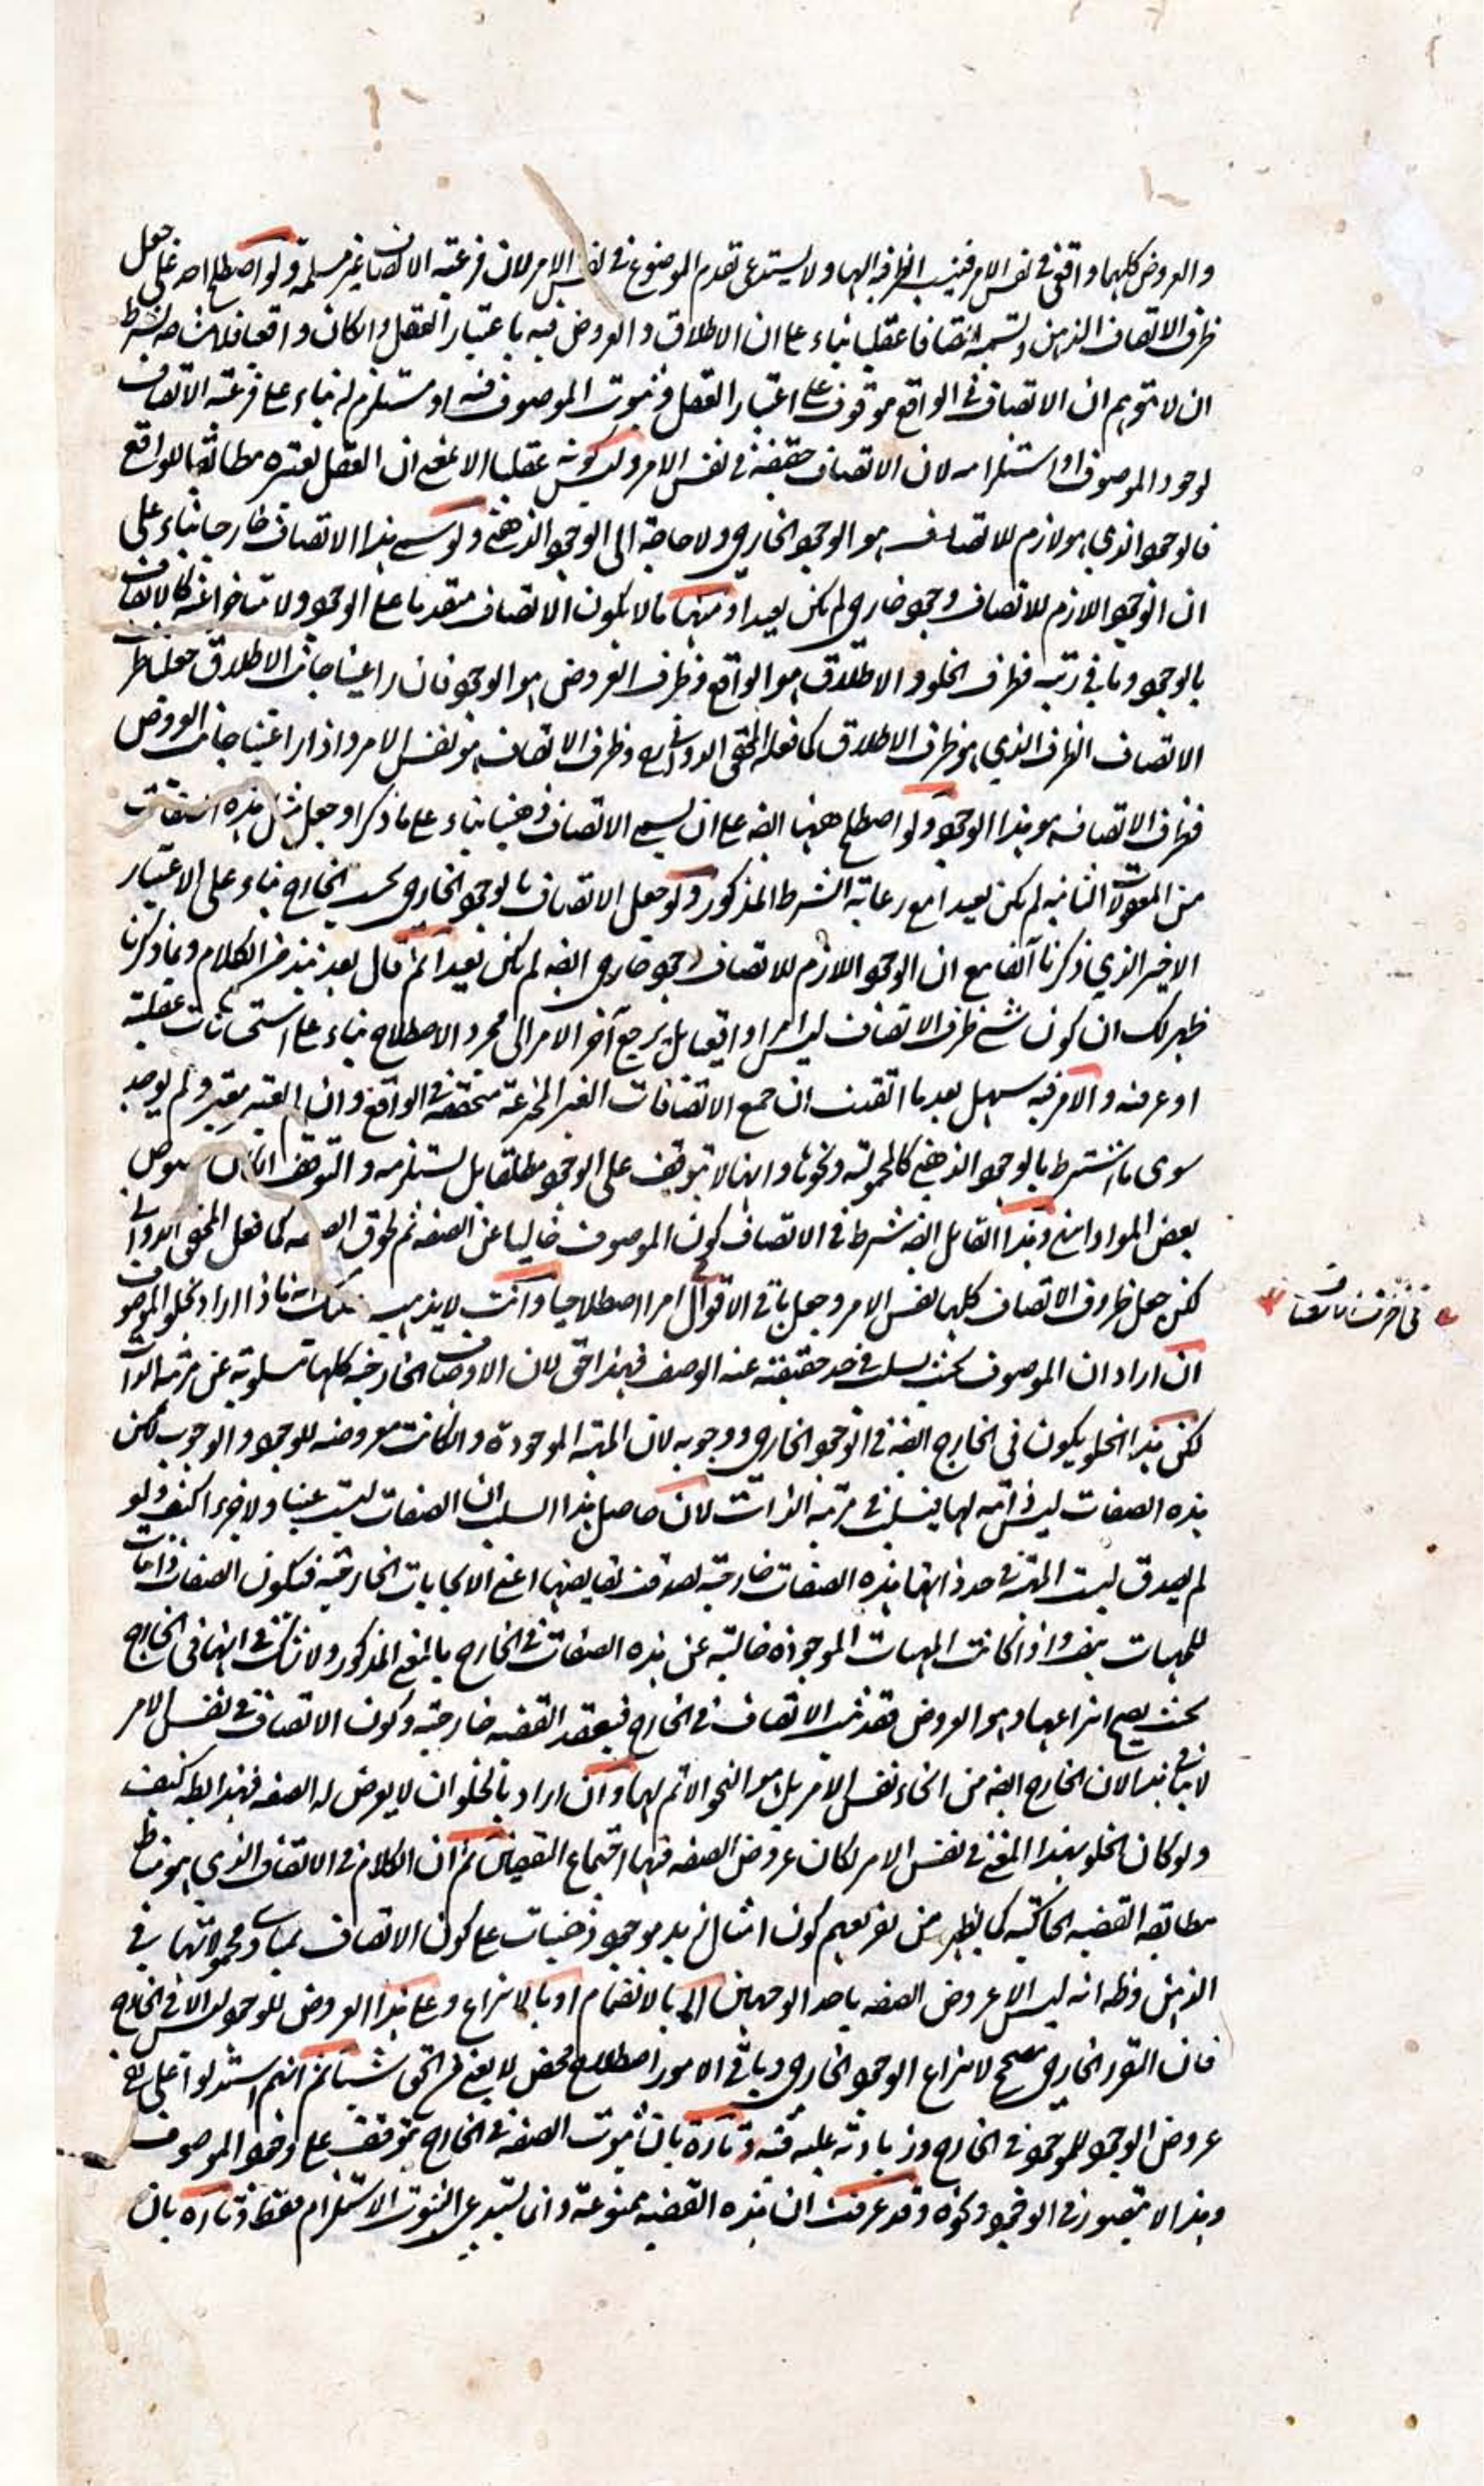 والعروض كليهما واقع في نفس الامر فينسب الظرفية اليها ولا يستدعي تقدم الموضوع في نفس الامر لان فرعية الاتصاف غير مسلمة ولو اصطلح احد على جعل
ظرف الاتصاف الذهن وتسميته اتصافا عقليا بناء على ان الاطلاق والعروض فيه باعتبار العقل وان كان واقعا فلا بشرط
ان لا يتوهم ان الاتصاف في الواقع موقوف على اعتبار العقل وثبوت الموصوف فيه او مستلزم له بناء على فرعية الاتصاف
لوجود الموصوف او استلزامه لان الاتصاف حقيقة في نفس الامر وليس كونه عقليا الا بمعنى ان العقل يعتبره مطابقا للواقع
فالوجود الذي هو لازم للاتصاف هو الوجود الخارجي ولا حاجة الى الوجود الذهني ولو سمي هذا الاتصاف خارجيا بناء على
ان الوجود اللازم للاتصاف وجود خارجي لم يكن بعيدا ومنها ما لا يكون الاتصاف متقدما على الوجود ولا متاخرا عنه كالاتصاف
بالوجود وما في رتبته فظرف الخلو والاطلاق هو الواقع وظرف العروض هو الوجود فان راعينا جانب الاطلاق جعلنا ظرف
الاتصاف الظرف الذي هو ظرف الاطلاق كما فعله المحقق الدواني وظرف الاتصاف هو نفس الامر واذا راعينا جانب العروض
فظرف الاتصاف هو هذا الوجود ولو اصطلح ههنا ايضه على ان يسمى الاتصاف ذهنيا بناء على ما ذكر او جعل مثل هذه
من المعقولات الثانية لم يكن بعيدا مع رعاية الشرط المذكور ولو جعل الاتصاف بالوجود الخارجي بحسب الخارج بناء على الاعتبار
الاخير الذي ذكرنا آنفا مع ان الوجود اللازم للاتصاف وجود خارجي ايضه لم يكن بعيدا ثم قال بعد نبذ من الكلام وبما ذكرنا
ظهر لك ان كون شئ ظرف الاتصاف ليس امرا واقعيا بل يرجع آخر الامر الى مجرد الاصطلاح بناء على استحسانات عقلية
او عرفية والامر فيه سهل بعد ما اتقنت ان جميع الاتصافات الغير المخترعة متحققة في الواقع وان لم يعتبر معتبر ولم يوجد
سوى ما اشترط بالوجود الذهني كالمحمولية ونحوها وانها لا تتوقف على الوجود مطلقا بل تستلزمه والتوقف
بعض المواد انتهى وهذا القائل ايضه شرط في الاتصاف كون الموصوف خاليا عن الصفة ثم لحوق الصفة كما فعل المحقق الدواني
لكن جعل ظروف الاتصاف كلها نفس الامر وجعل باقي الاقوال امرا اصطلاحيا وانت لا يذهب عليك انه ماذا اراد بخلو الموصوف
ان اراد ان الموصوف بحيث يسلب في حد حقيقته عنه الوصف فهذا حق لان الاوصاف الخارجية كلها مسلوبة عن مرتبة الذات
لكن هذا الخلو يكون في الخارج ايضه في الوجود الخارجي ووجوبه لان المهية الموجودة وان كانت معروضة للوجود والوجوب لكن
هذه الصفات ليس ذاتية لها فيسلب في مرتبة الذات لان حاصل هذا السلب ان الصفات ليست عينا ولا جزءا كيف ولو
لم يصدق ليست المهية في حد ذاتها هذه الصفات خارجية لصدقت نقايضها اعني الايجابات الخارجية فيكون الصفات ذاتيات
للمهيات هف واذا كانت المهيات الموجودة خالية عن هذه الصفات في الخارج بالمعنى المذكور ولا شك في انها في الخارج
بحيث يصح انتزاعها وهو العروض فقد ثبت الاتصاف في الخارج فيعقد القضية خارجية وكون الاتصاف في نفس الامر
لا ينافي هذا لان الخارج ايضه من انحاء نفس الامر بل هو النحو الاتم لها وان اراد بالخلو ان لا يعرض له الصفة فهذا بط كيف
ولو كان الخلو بهذا المعنى في نفس الامر لكان عروض الصفة فيها اجتماع النقيضين ثم ان الكلام في الاتصاف الذي هو مناط
مطابقة القضية الحاكية كما يظهر من تفريعهم كون امثال زيد موجود ذهنيات على كون الاتصاف بمبادي محمولاتها في
الذهن وظ انه ليس الا عروض الصفة باحد الوجهين اما بالانضمام او بالانتزاع وعلى هذا العروض للوجود ليس الا في الخارج
فان التقرر الخارجي مصحح لانتزاع الوجود الخارجي وباقي الامور اصطلاح محض لا يغني من الحق شيئا ثم انهم استدلوا على نفي
عروض الوجود للموجود في الخارج وزيادته عليه فيه وتارة بان ثبوت الصفة في الخارج يتوقف على وجود الموصوف
وهذا لا يتصور في الوجود ونحوه وقد عرفت ان هذه القضية ممنوعة وانما يستدعي الثبوت الاستلزام فقط وتارة بان